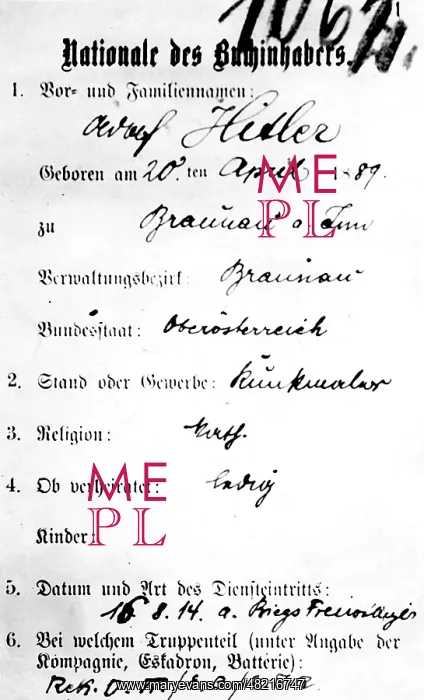 1
1062
Nationale des Buchinhabers.
1. Vor- und Familiennamen:
Adolf Hitler
Geboren am 20. ten April 1889.
zu Braunau a. Inn
Verwaltungsbezirk: Braunau
Bundesstaat: Oberösterreich
2. Stand oder Gewerbe: Kunstmaler
3. Religion: kath.
4. Ob verheiratet: ledig
Kinder:
5. Datum und Art des Diensteintritts:
16. 8. 14. a. Kriegsfreiwilliger
6. Bei welchem Truppenteil (unter Angabe der
Kompagnie, Eskadron, Batterie):
Rek.
ME
PL
ME
PL
www.maryevans.com/48216747